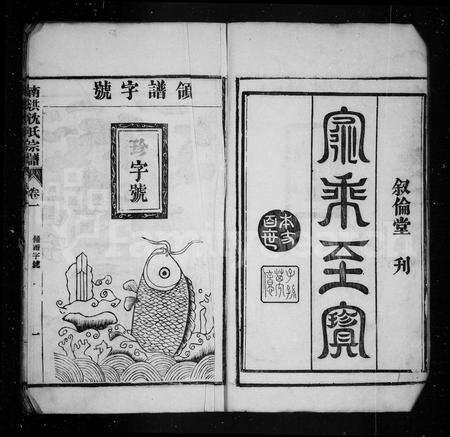 家乘至寶
叙倫堂 刊
本支百世
領譜字號
珍字號
南洪沈氏宗譜
卷一
領譜字號
一